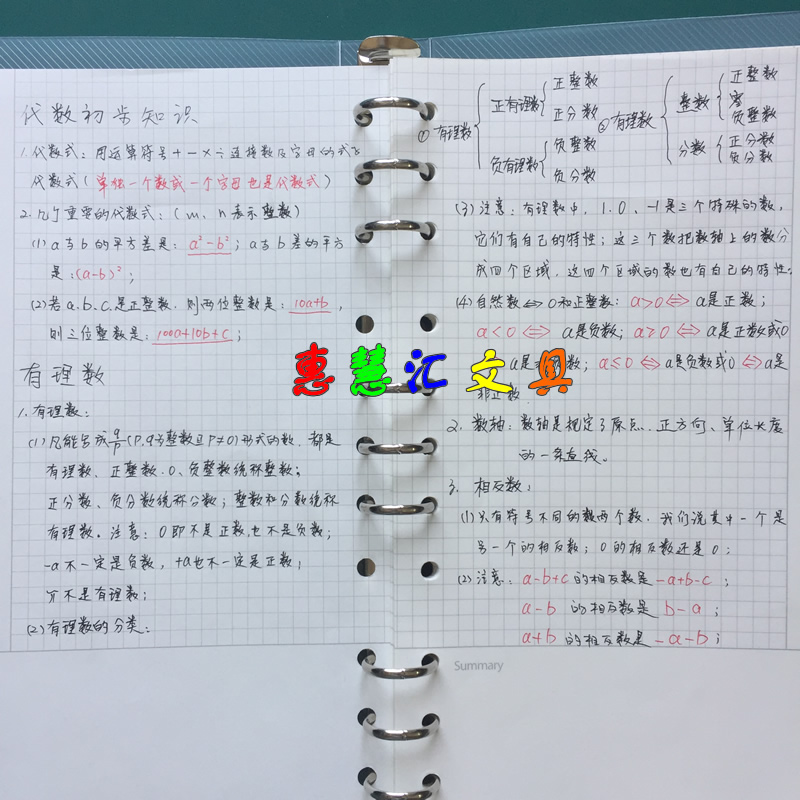 代数初步知识
1. 代数式：用运算符号＋－×÷连接数及字母的式子
代数式（单独一个数或一个字母也是代数式）
2. 几个重要的代数式：（m、n表示整数）
(1) a与b的平方差是：a²-b²；a与b差的平方
是：(a-b)²；
(2)若a.b.c.是正整数，则两位整数是：10a+b，
则三位整数是：100a+10b+c；
有理数
1. 有理数：
(1) 凡能写成q/p(p.q为整数且p≠0)形式的数，都是
有理数、正整数、0、负整数统称整数；
正分数、负分数统称分数；整数和分数统称
有理数。注意：0即不是正数，也不是负数；
-a不一定是负数，+a也不一定是正数；
π不是有理数；
(2)有理数的分类：
① 有理数 正有理数 正整数 正分数
负有理数 负整数 负分数
② 有理数 整数 正整数 零 负整数
分数 正分数 负分数
(3) 注意：有理数中，1.0、-1是三个特殊的数，
它们有自己的特性；这三个数把数轴上的数分
成四个区域，这四个区域的数也有自己的特性。
(4) 自然数⇔0和正整数；a>0⇔a是正数；
a<0⇔a是负数；a≥0⇔a是正数或0
a是非负数；a≤0⇔a是负数或0⇔a是
非正数.
惠慧汇文具
2. 数轴：数轴是规定了原点、正方向、单位长度
的一条直线。
3. 相反数：
(1)只有符号不同的数两个数，我们说其中一个是
另一个的相反数；0的相反数还是0；
(2)注意：a-b+c的相反数是-a+b-c；
a-b 的相反数是 b-a；
a+b 的相反数是 -a-b；
Summary